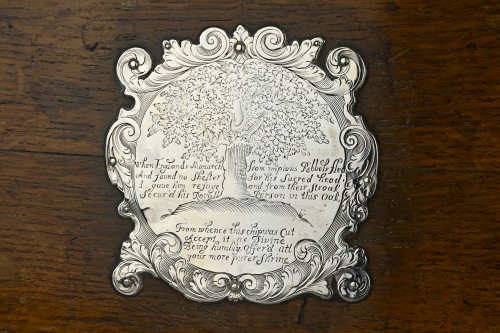 When England's Monarch from impious Rebbels fled
And found no Shelter for his Sacred head
I gave him refuge and from their stroak
Secur'd his Royall Person in this Oak
From whence this chip was Cut
Accept it as Divine
Being humbly Offer'd att
your more purer Shrine